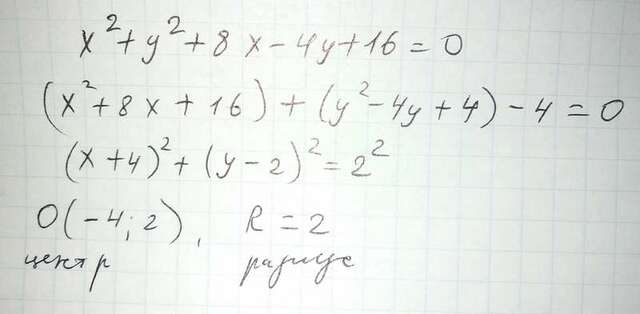 x² + y² + 8x - 4y + 16 = 0
(x² + 8x + 16) + (y² - 4y + 4) - 4 = 0
(x + 4)² + (y - 2)² = 2²
O(-4; 2), R = 2
центр радиус